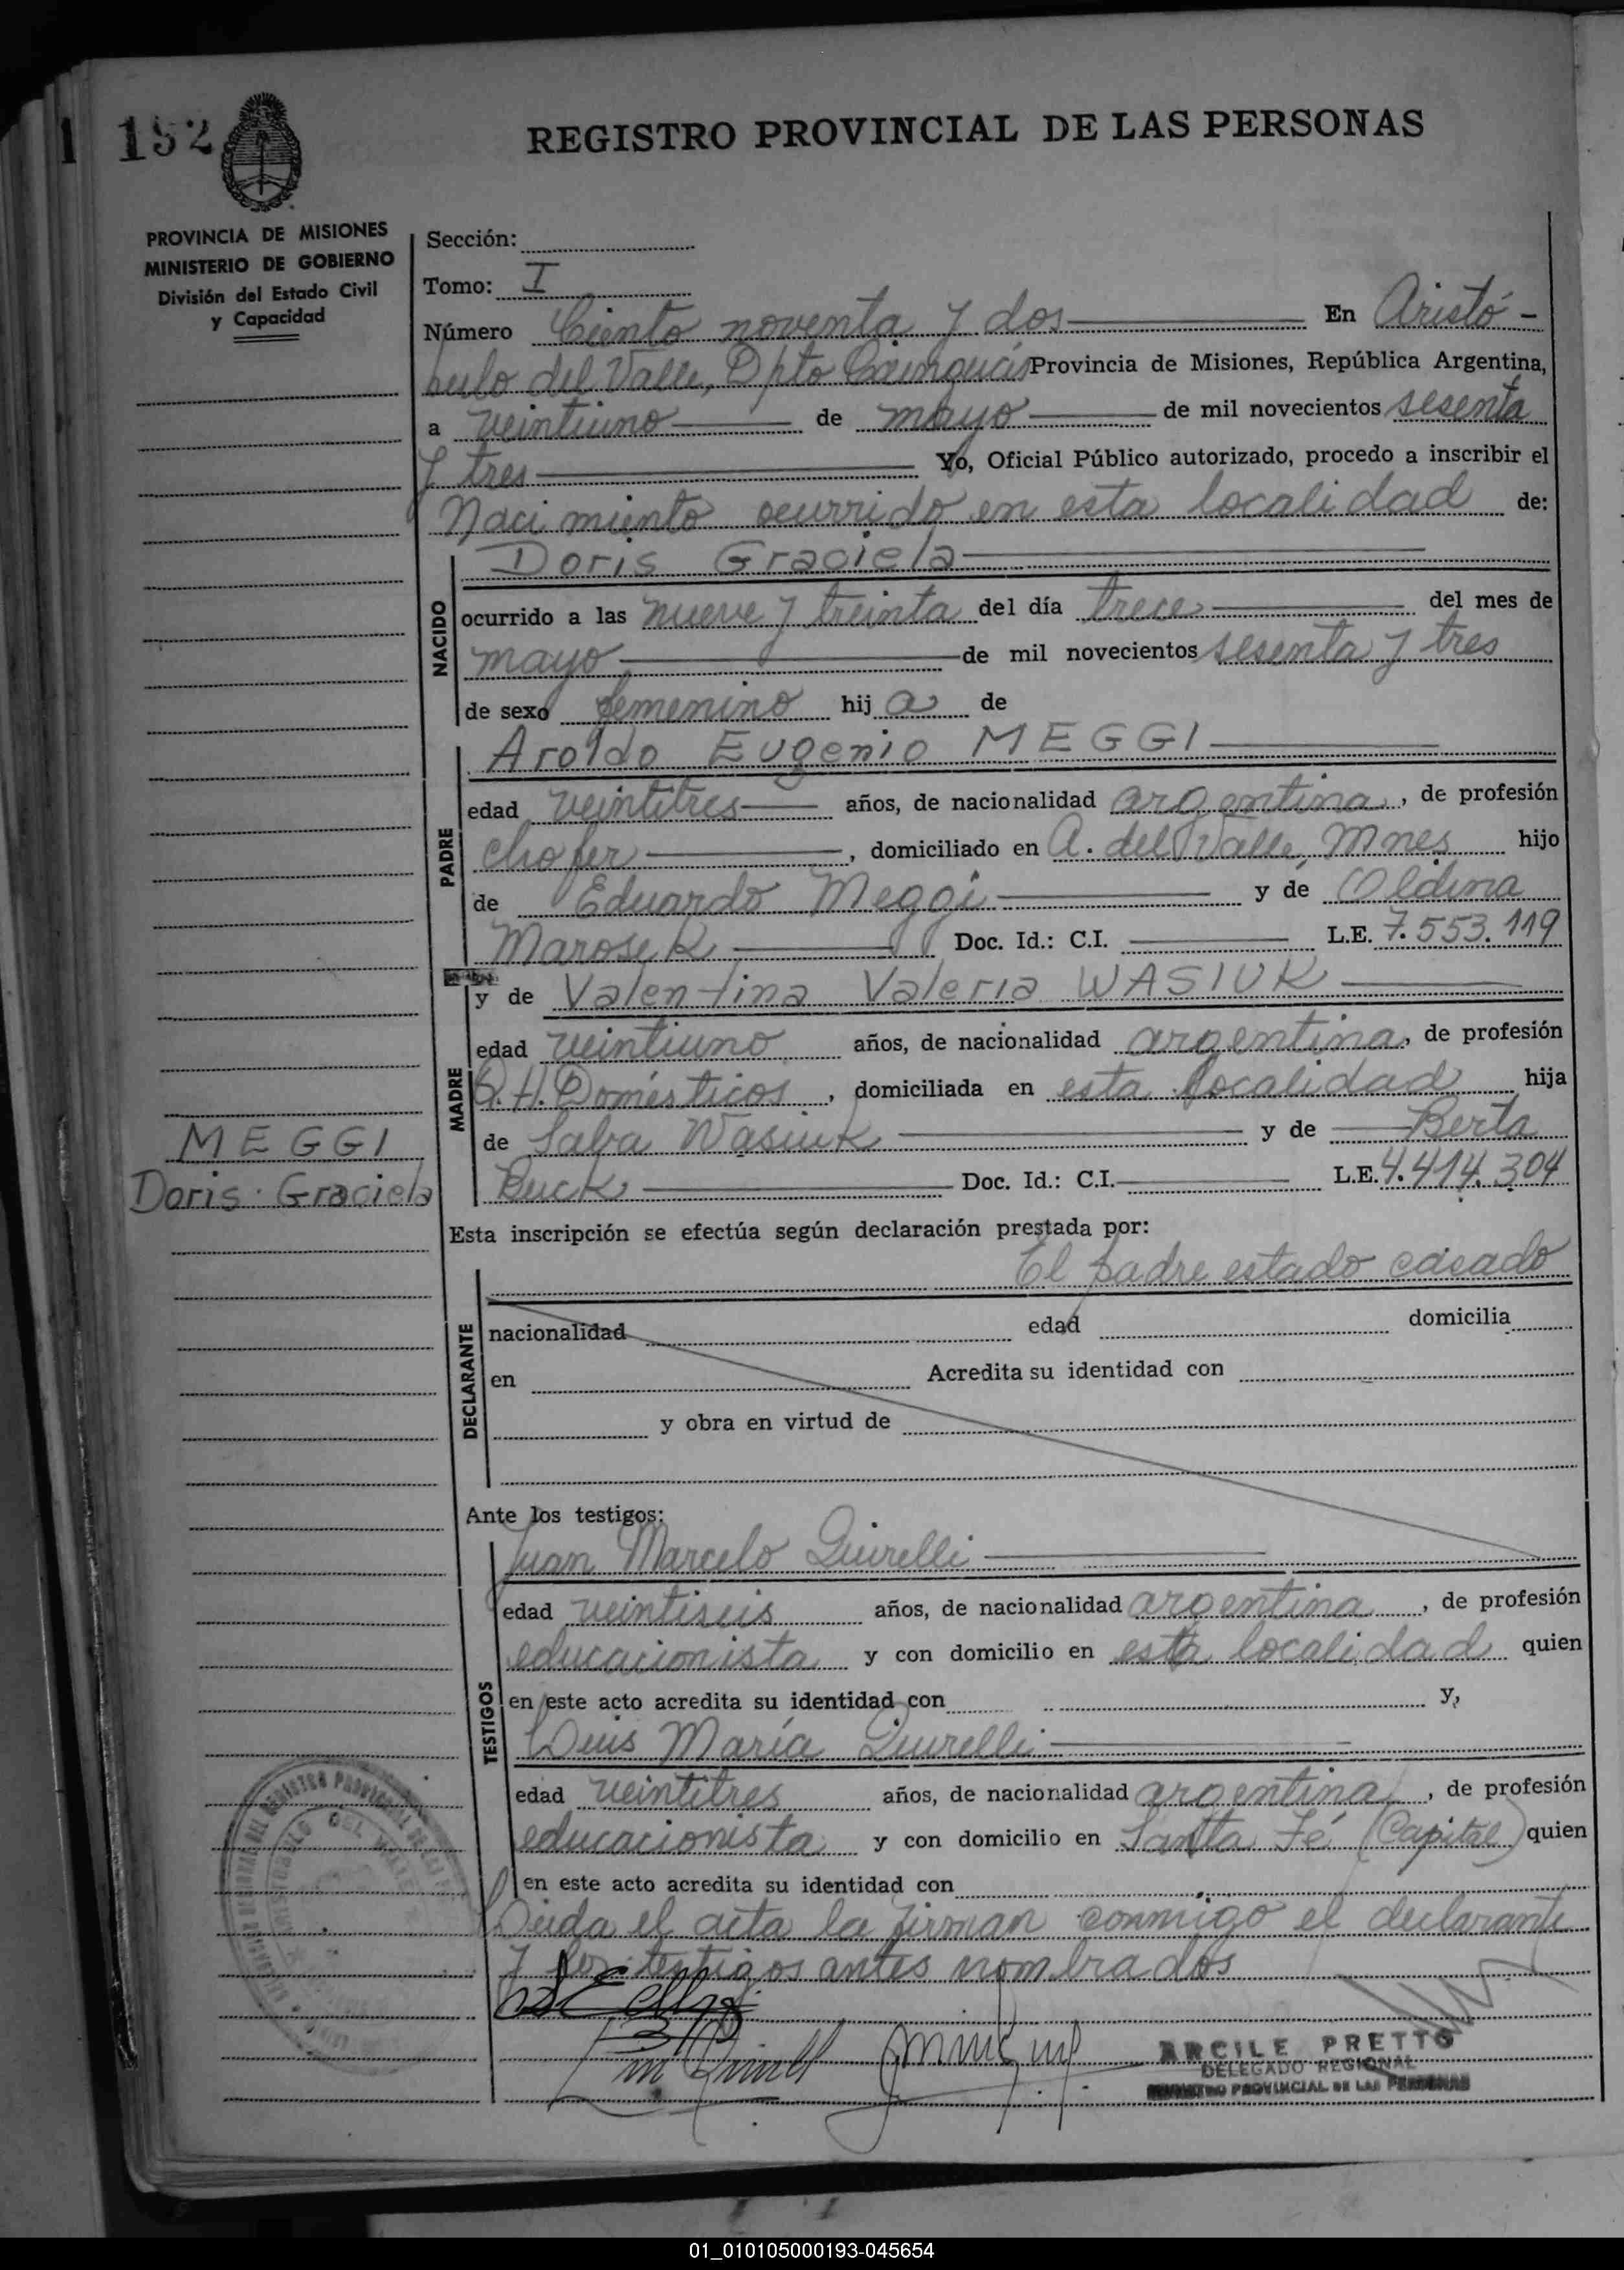 192
REGISTRO PROVINCIAL DE LAS PERSONAS
PROVINCIA DE MISIONES
MINISTERIO DE GOBIERNO
División del Estado Civil
y Capacidad
Sección:
Tomo: I
Número Ciento noventa y dos En Aristó-
bulo del Valle, Dpto Cainguás Provincia de Misiones, República Argentina,
a veintiuno de mayo de mil novecientos sesenta
y tres Yo, Oficial Público autorizado, procedo a inscribir el
Nacimiento ocurrido en esta localidad de:
NACIDO
Doris Graciela
ocurrido a las nueve y treinta del día trece del mes de
mayo de mil novecientos sesenta y tres
de sexo femenino hija de
PADRE
Aroldo Eugenio MEGGI
edad veintitres años, de nacionalidad argentina, de profesión
chofer, domiciliado en A. del Valle, Mnes hijo
de Eduardo Meggi y de Oldina
Marosek Doc. Id.: C.I. L.E. 7.553.119
MADRE
y de Valentina Valeria WASIUK
edad veintiuno años, de nacionalidad argentina, de profesión
Q.H. Domésticos, domiciliada en esta localidad hija
de Saba Wasiuk y de Berta
Buck Doc. Id.: C.I. L.E. 4.414.304
MEGGI
Doris Graciela
Esta inscripción se efectúa según declaración prestada por:
DECLARANTE
El padre estado casado
nacionalidad edad domicilia
en Acredita su identidad con
y obra en virtud de
Ante los testigos:
TESTIGOS
Juan Marcelo Quirelli
edad veintiseis años, de nacionalidad argentina, de profesión
educacionista y con domicilio en esta localidad quien
en este acto acredita su identidad con y,
Luis María Quirelli
edad veintitres años, de nacionalidad argentina, de profesión
educacionista y con domicilio en Santa Fé (Capital) quien
en este acto acredita su identidad con
Leida el acta la firman conmigo el declarante
y los testigos antes nombrados
ARCILE PRETTO
DELEGADO REGIONAL
REGISTRO PROVINCIAL DE LAS PERSONAS
01_010105000193-045654